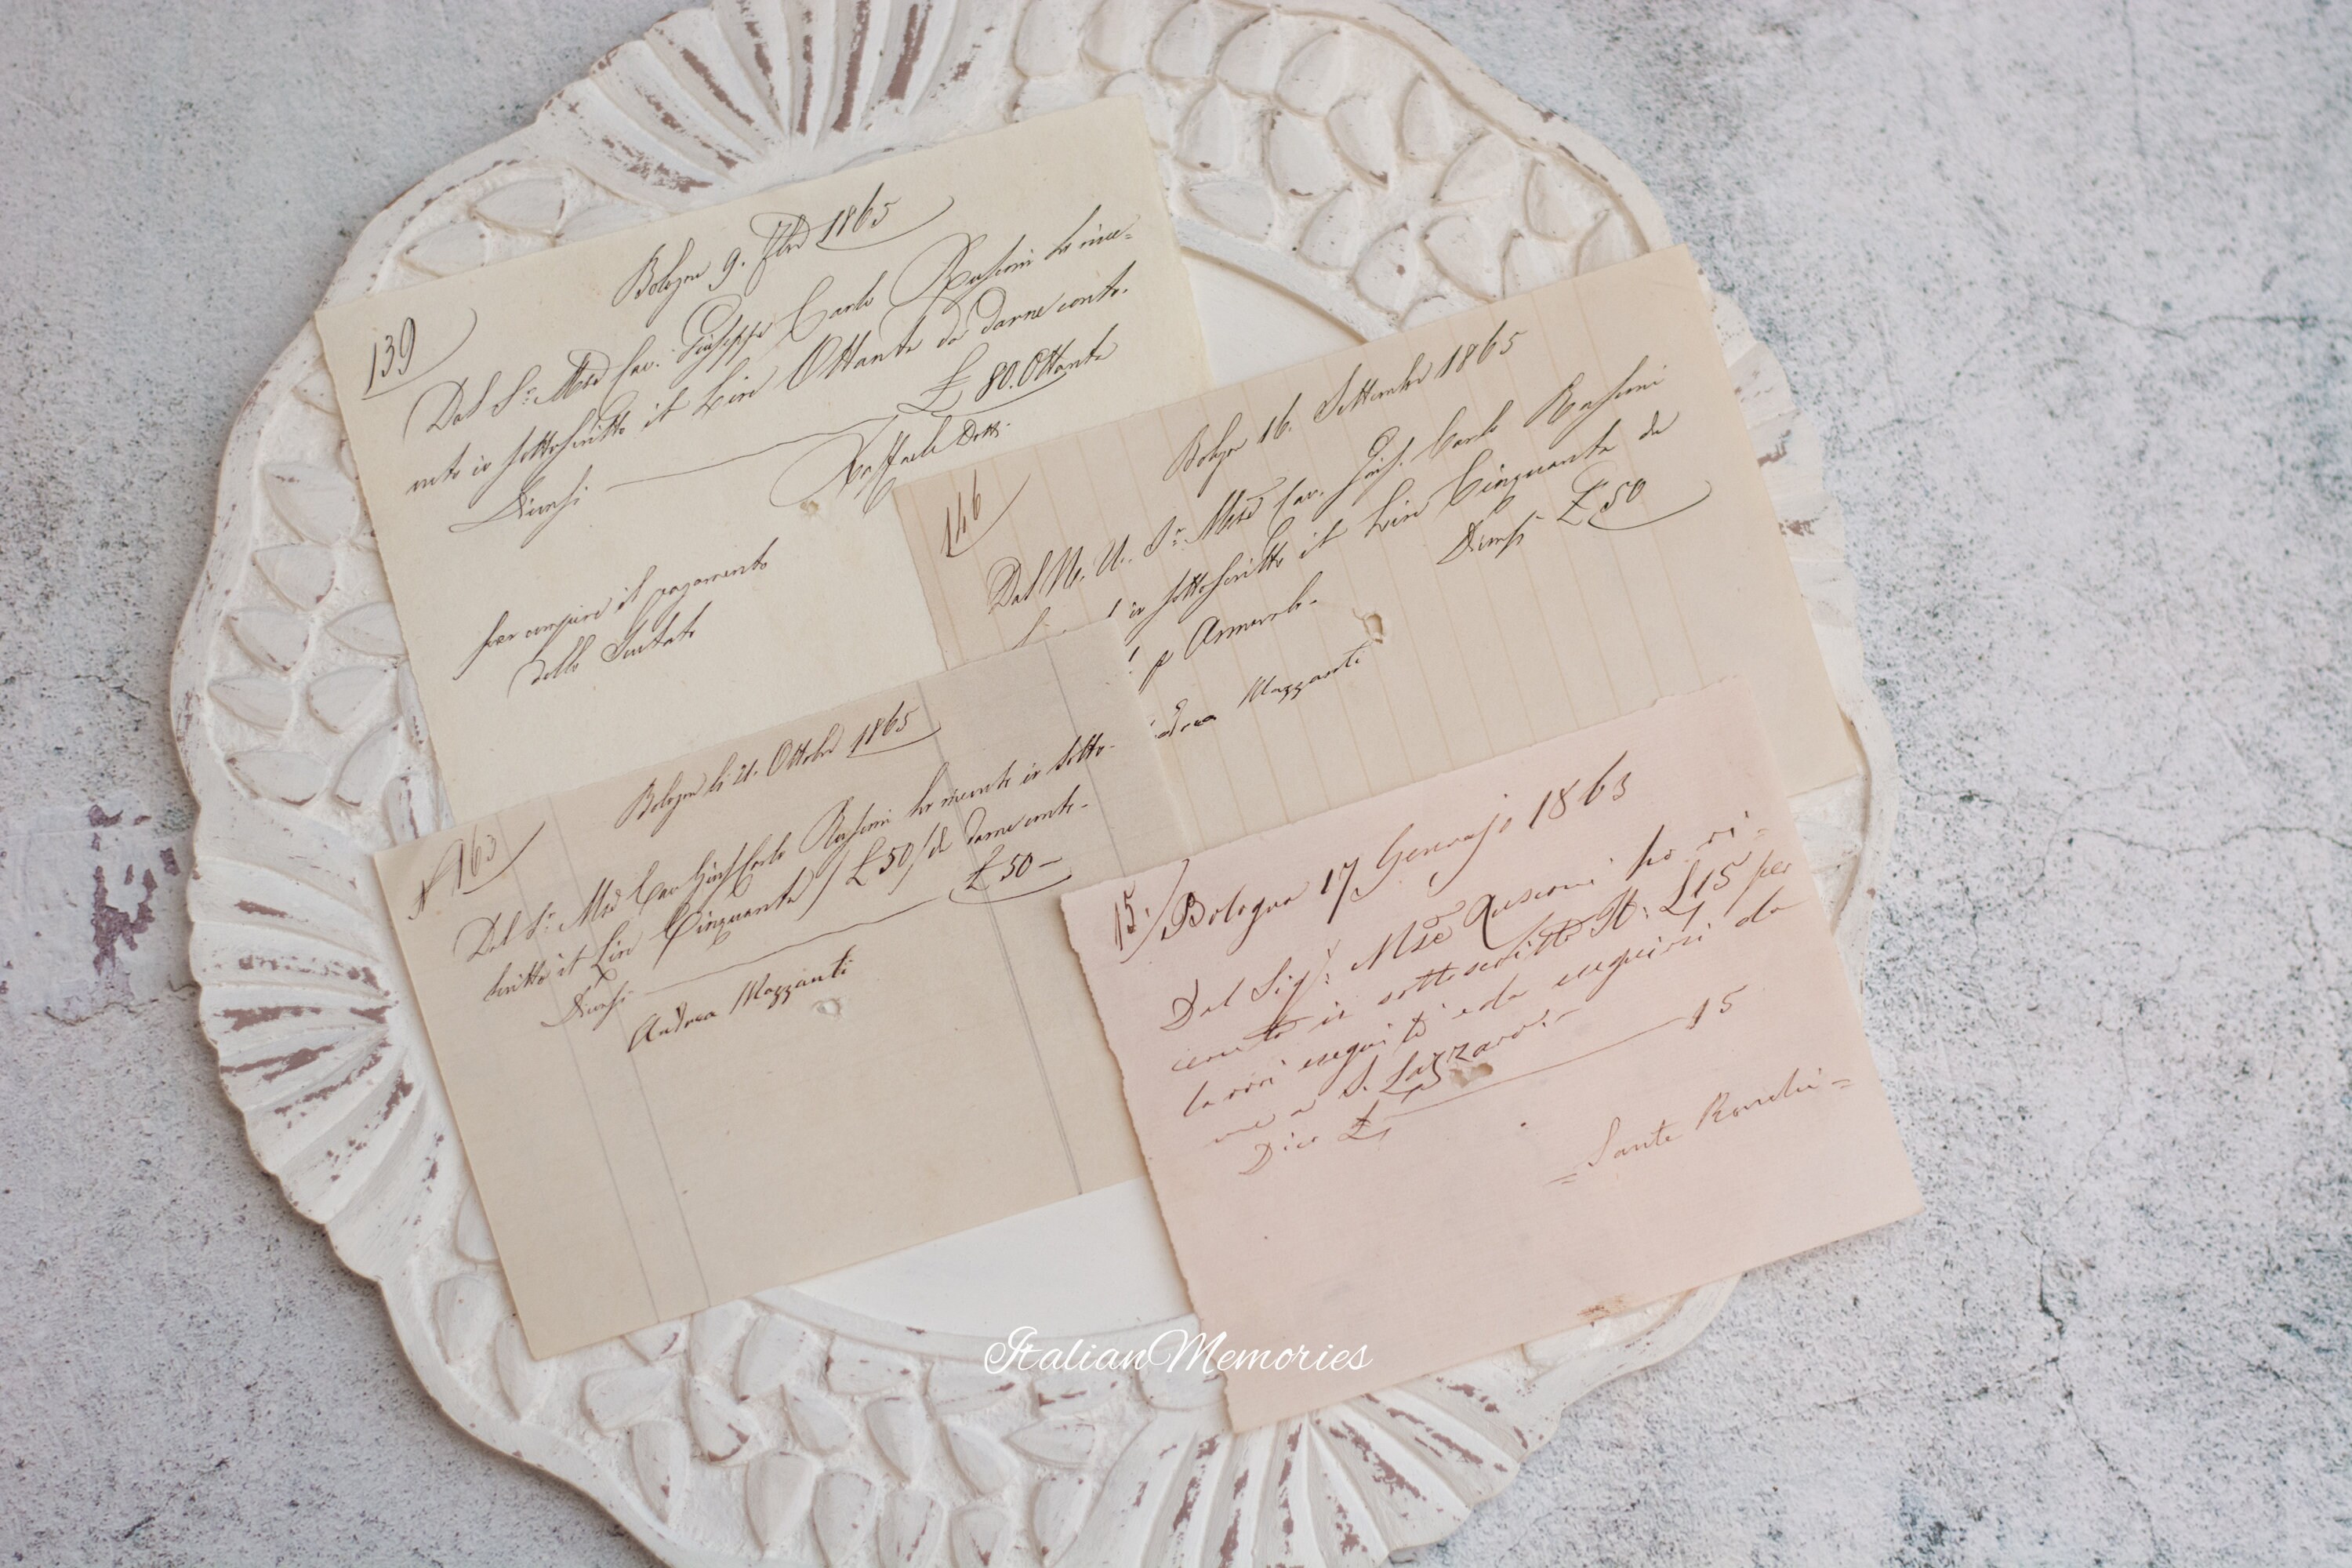 139
Bologna 9. 7bre 1865
Dal Sr. Mse Cav. Giuseppe Carlo Rusconi ho rice-
vuto io sottoscritto it Lire Ottanta da darne conto.
Diconsi £ 80. Ottanta
Raffaele Dotti
per compire il pagamento
dello
146
Bologna 16. Settembre 1865
Dal N. U. Sr. Mse Cav. Gius. Carlo Rusconi
io sottoscritto it Lire Cinquanta da
Diconsi £ 50
p
Mazzanti
N 163
Bologna li 21. Ottobre 1865
Dal Sr. Mse Cav Gius Carlo Rusconi ho ricevuto io sotto-
scritto it Lire Cinquanta / £ 50 / da darne conto-
Diconsi £ 50 -
Andrea Mazzanti
15.
Bologna 17 Gennajo 1863
Dal Sigr: Mse Rusconi ho ri=
cevuto io sottoscritto It: £ 15 per
lavori eseguiti e da eseguirsi da
me a S. Lazzaro.-
Dico £ 15
= Sante =
ItalianMemories